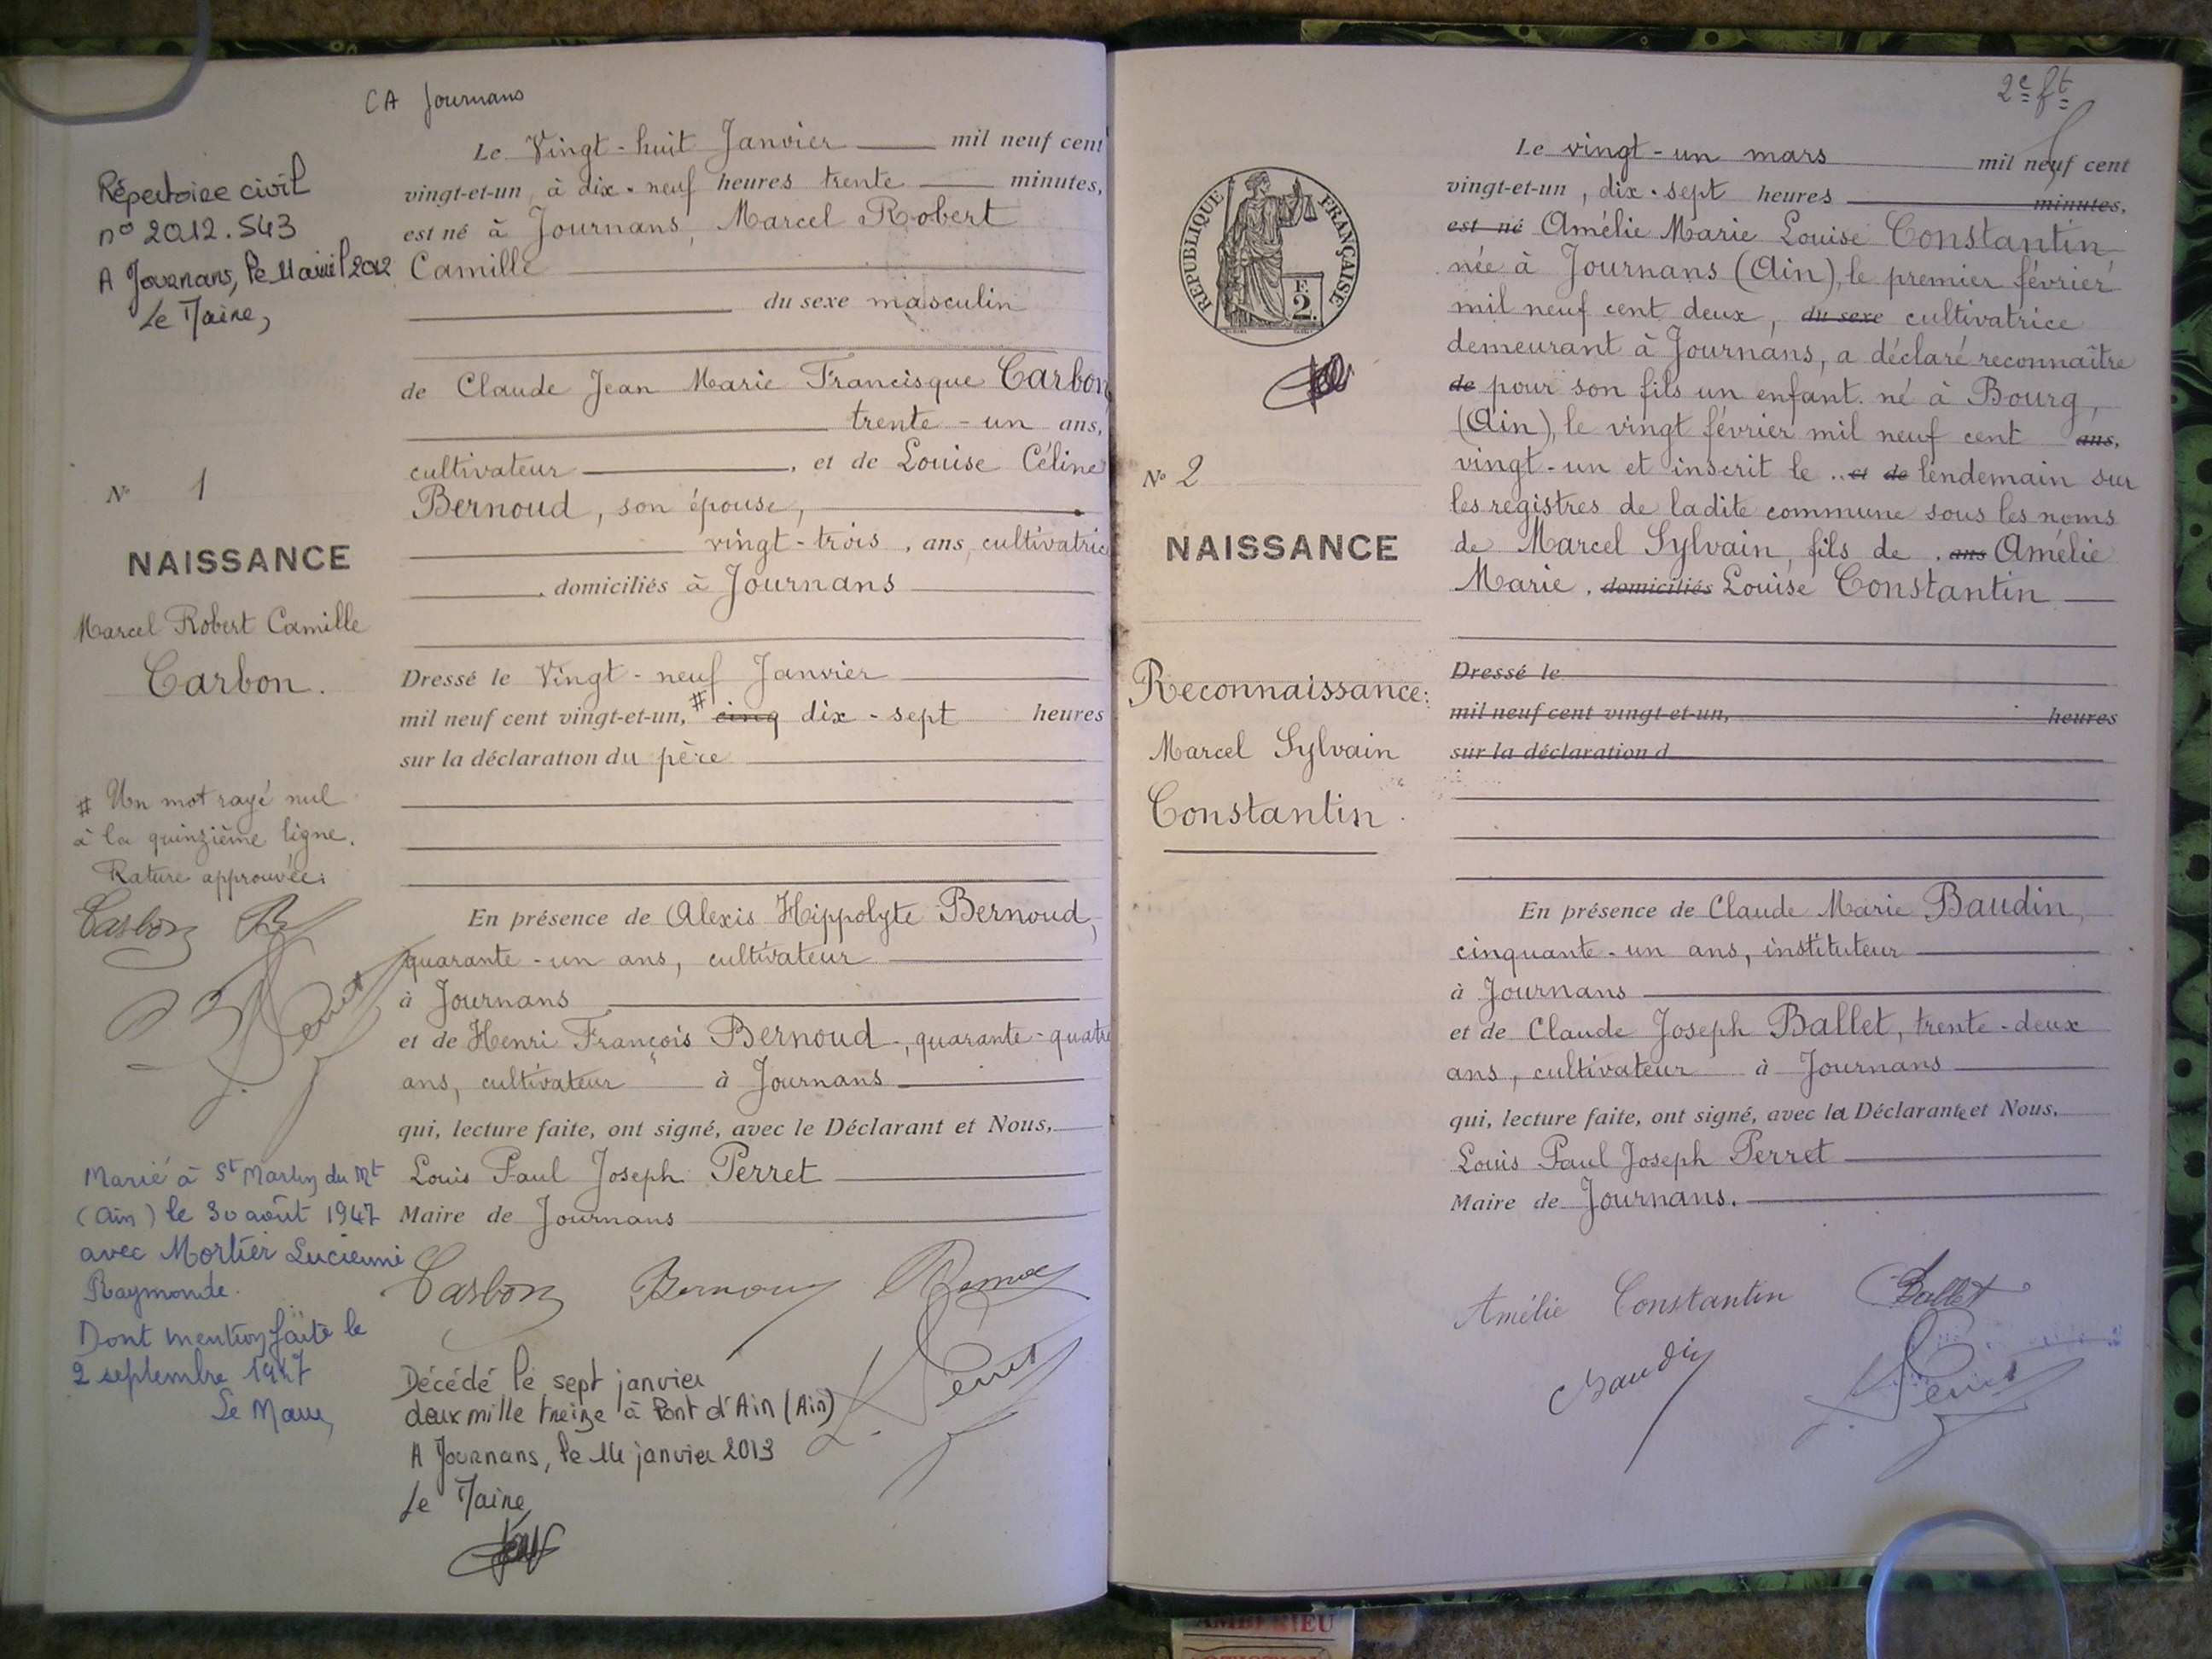 CA Journans
Répertoire civil
n° 2012.543
A Journans, le 11 avril 2012
Le Maire,
N° 1
NAISSANCE
Marcel Robert Camille
Carbon.
# Un mot rayé nul
à la quinzième ligne.
Rature approuvée:
Carbon
Marié à St Martin du Mt
(Ain) le 30 août 1947
avec Mortier Lucienne
Raymonde.
Dont mention faite le
2 septembre 1947
Le Maire,
Le Vingt-huit Janvier mil neuf cent
vingt-et-un, à dix-neuf heures trente minutes,
est né à Journans, Marcel Robert
Camille
du sexe masculin
de Claude Jean Marie Francisque Carbon
trente-un ans,
cultivateur, et de Louise Céline
Bernoud, son épouse,
vingt-trois, ans, cultivatrice
, domiciliés à Journans
Dressé le Vingt-neuf Janvier
mil neuf cent vingt-et-un, # cinq dix-sept heures
sur la déclaration du père
En présence de Alexis Hippolyte Bernoud,
quarante-un ans, cultivateur
à Journans
et de Henri François Bernoud, quarante-quatre
ans, cultivateur à Journans
qui, lecture faite, ont signé, avec le Déclarant et Nous,
Louis Paul Joseph Perret
Maire de Journans
Carbon Bernoud
Perret
Décédé le sept janvier
deux mille treize à Pont d'Ain (Ain)
A Journans, le 14 janvier 2013
Le Maire,
2e ft
REPUBLIQUE FRANÇAISE
F.
2.
N° 2
NAISSANCE
Reconnaissance:
Marcel Sylvain
Constantin.
Le vingt-un mars mil neuf cent
vingt-et-un, dix-sept heures minutes,
est né Amélie Marie Louise Constantin
née à Journans (Ain), le premier février
mil neuf cent deux, du sexe cultivatrice
demeurant à Journans, a déclaré reconnaître
de pour son fils un enfant né à Bourg,
(Ain), le vingt février mil neuf cent ans,
vingt-un et inscrit le .. et de lendemain sur
les registres de ladite commune sous les noms
de Marcel Sylvain, fils de . ans Amélie
Marie . domiciliés Louise Constantin
Dressé le
mil neuf cent vingt-et-un, heures
sur la déclaration d
En présence de Claude Marie Baudin,
cinquante-un ans, instituteur
à Journans
et de Claude Joseph Ballet, trente-deux
ans, cultivateur à Journans
qui, lecture faite, ont signé, avec la Déclarante et Nous,
Louis Paul Joseph Perret
Maire de Journans.
Amélie Constantin Ballet
Baudin Perret
AMBERIEU